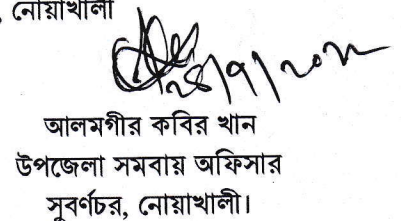 , নোয়াখালী
আলমগীর কবির খান
উপজেলা সমবায় অফিসার
সুবর্ণচর, নোয়াখালী।